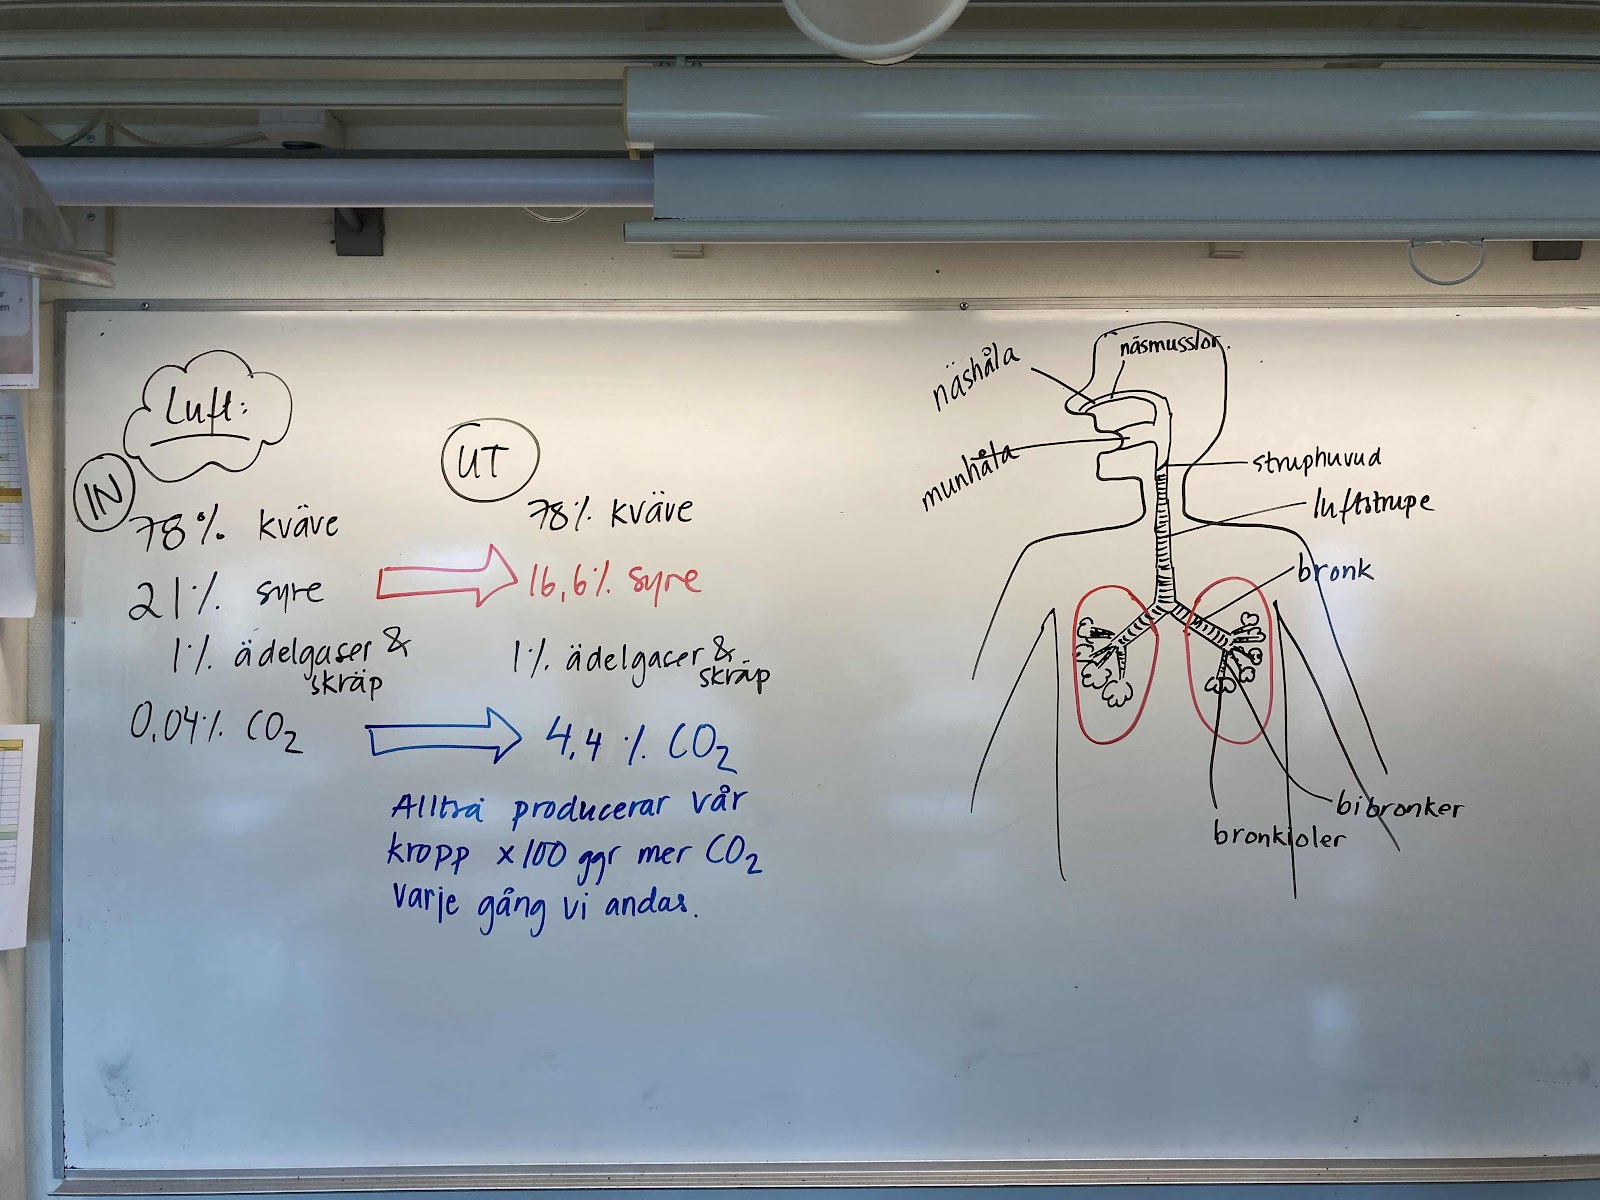 Luft:
IN
78% kväve
21% syre
1% ädelgaser &
skräp
0,04% CO2
UT
78% kväve
16,6% syre
1% ädelgacer &
skräp
4,4 % CO2
Alltså producerar vår
kropp x100 ggr mer CO2
varje gång vi andas.
näsmusslor.
näshåla
munhåla
struphuvud
luftstrupe
bronk
bibronker
bronkioler